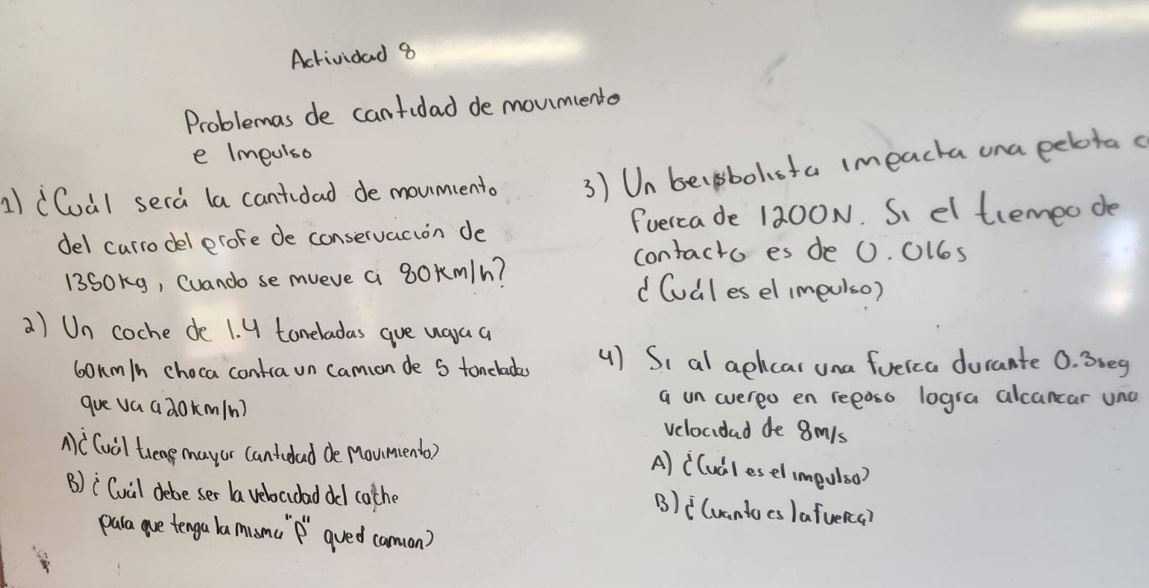 Actividad 8
Problemas de cantidad de movimiento
e Impulso
1) ¿Cuál será la cantidad de movimiento
del carro del profe de conservación de
1350kg, cuando se mueve a 80km/h?
2) Un coche de 1.4 toneladas que viaja a
60km/h choca contra un camion de 5 toneladas
que va a 20km/h?
A) ¿Cuál tiene mayor cantidad de Movimiento?
B) ¿Cuál debe ser la velocidad del coche
para que tenga la misma "p" que el camion?
3) Un beisbolista impacta una pelota c
fuerza de 1200N. Si el tiempo de
contacto es de 0.016s
¿Cuál es el impulso?
4) Si al aplicar una fuerza durante 0.3seg
a un cuerpo en reposo logra alcanzar una
velocidad de 8m/s
A) ¿Cuál es el impulso?
B) ¿Cuanto es la fuerza?